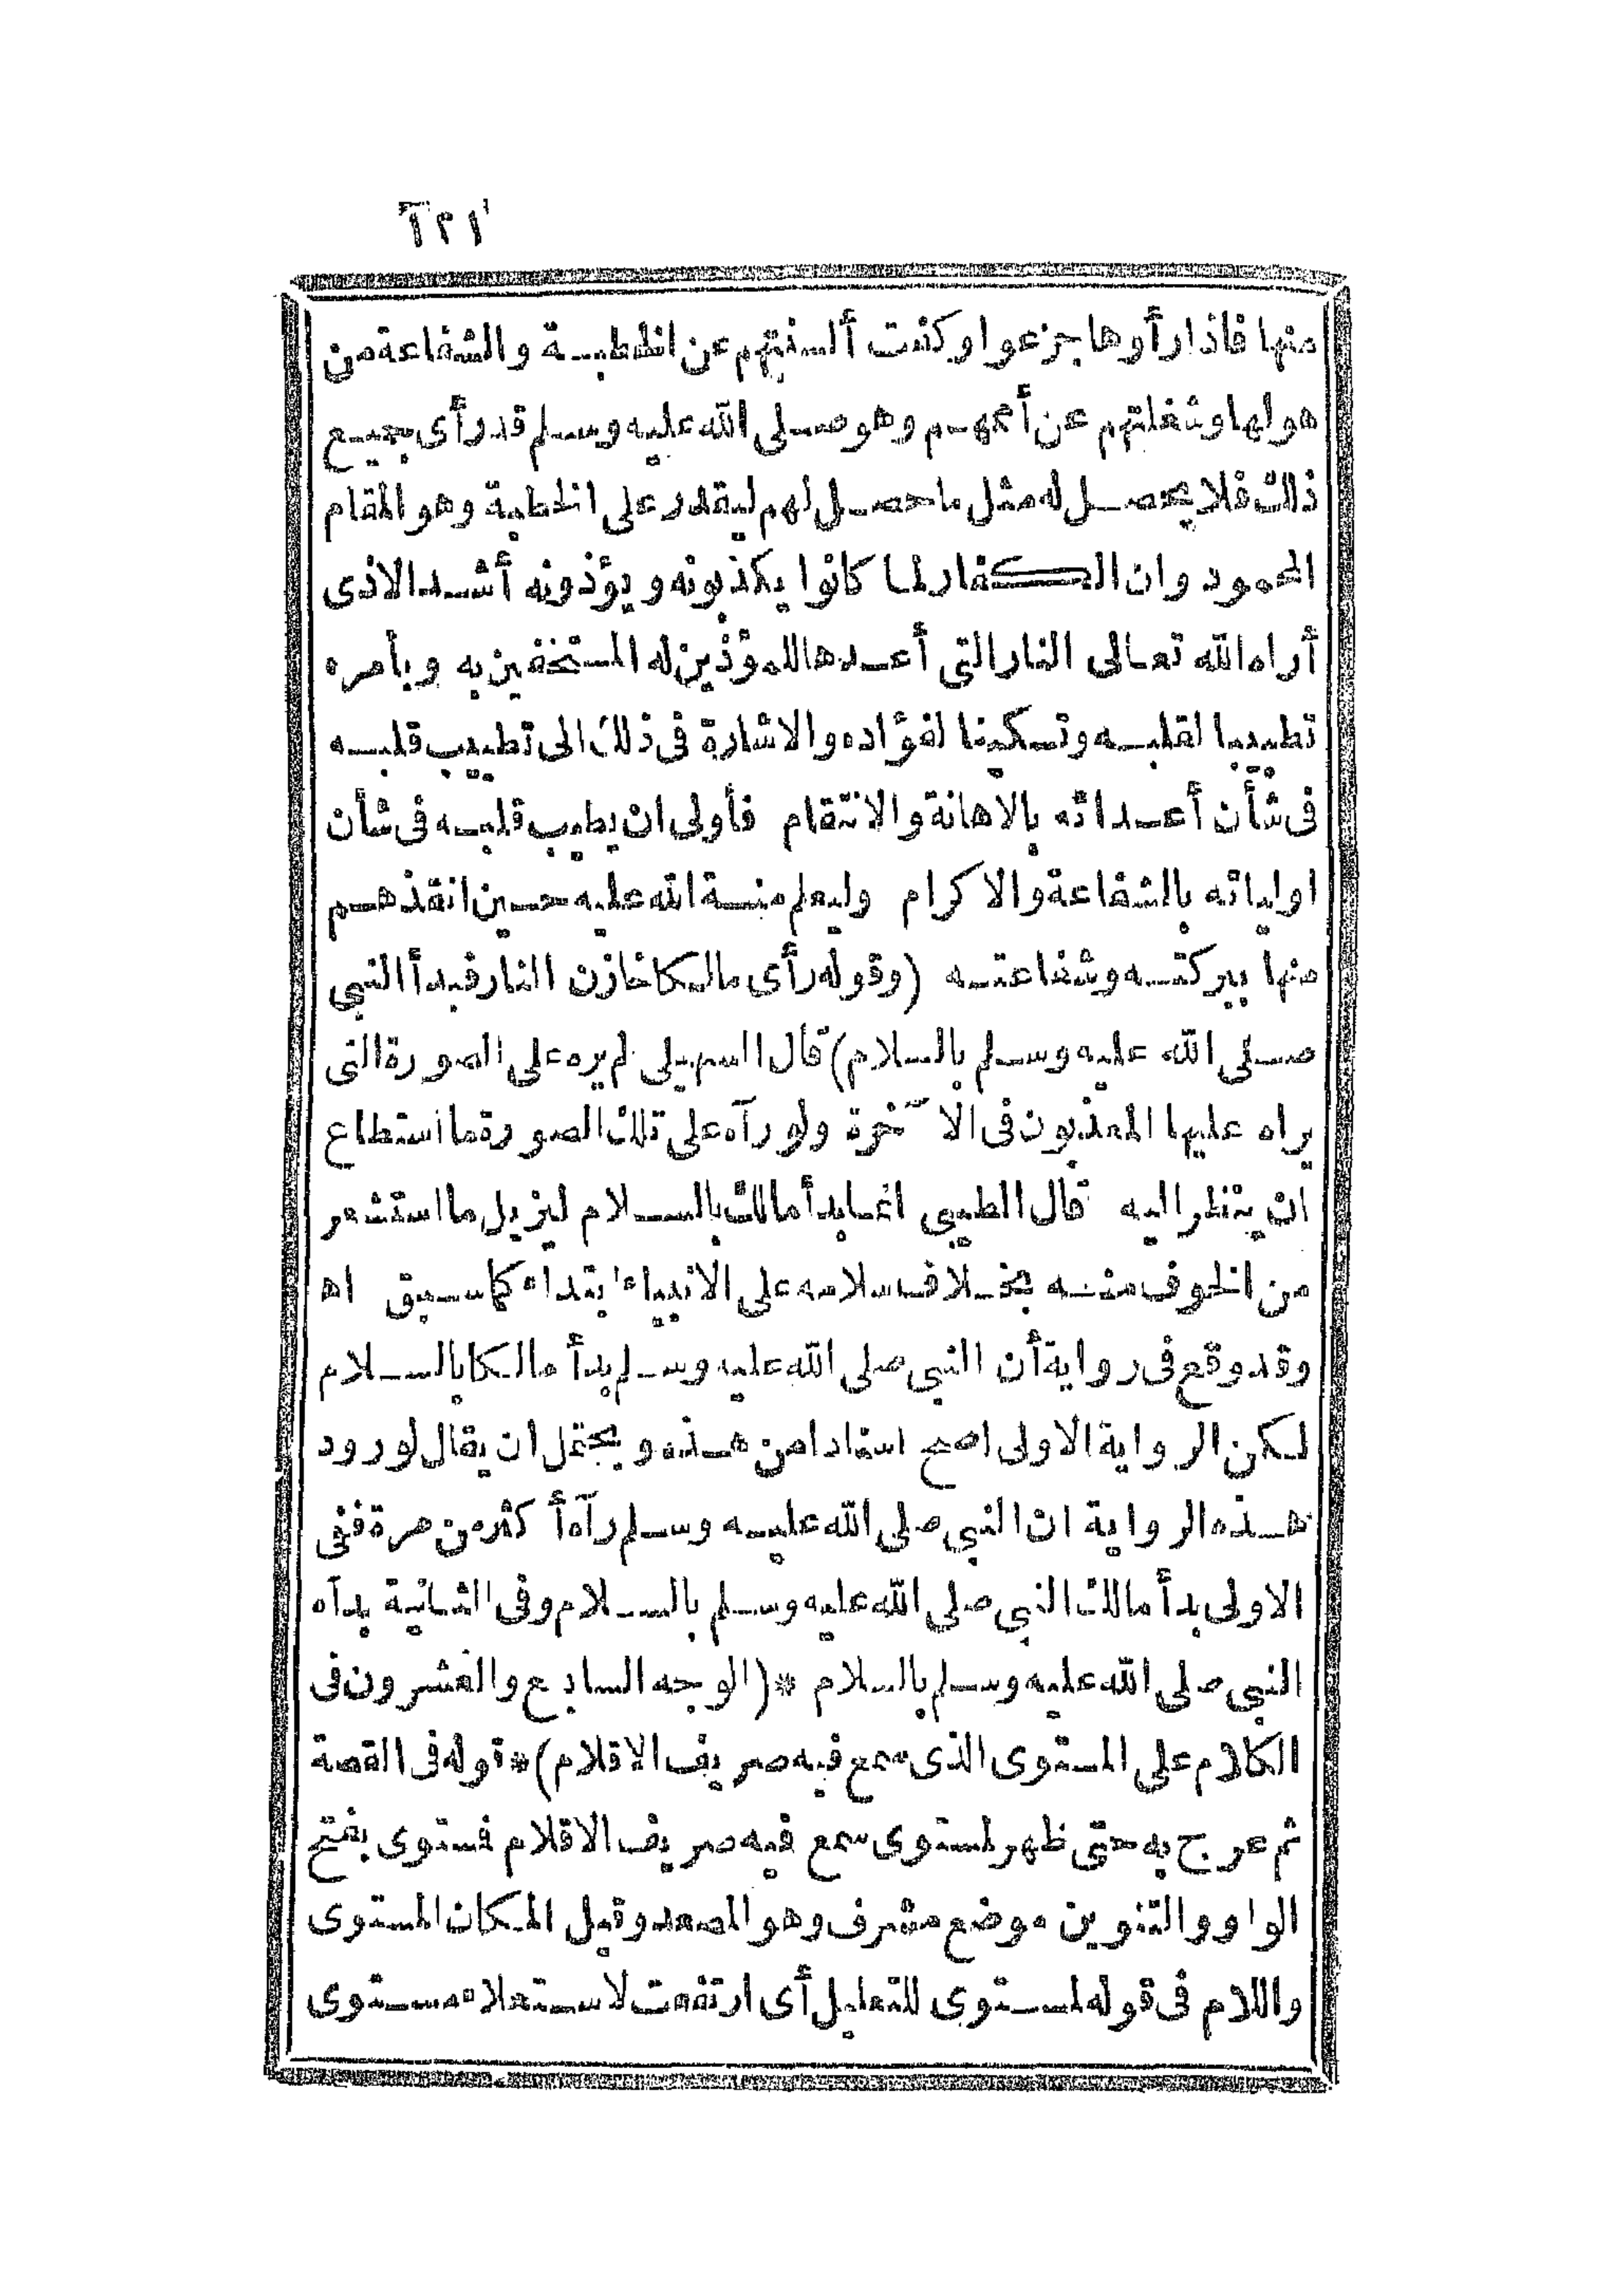 ١٢٦
منها فاذا رأوها جزعوا وكفت ألسنتهم عن الخطبة والشفاعة من
هولها وشغلتهم عن أممهم وهو صلى الله عليه وسلم قد رأى جميع
ذلك فلا يحصل له مثل ما حصل لهم ليقدر على الخطبة وهو المقام
المحمود وان الكفار لما كانوا يكذبونه ويؤذونه أشد الاذى
أراه الله تعالى النار التى أعدها للمؤذين له المستخفين به وبأمره
تطييبا لقلبه وتسكينا لفؤاده والاشارة فى ذلك الى تطييب قلبه
فى شأن أعدائه بالاهانة والانتقام فأولى ان يطيب قلبه فى شأن
اوليائه بالشفاعة والاكرام وليعلم منة الله عليه حين انقذهم
منها ببركته وشفاعته (وقوله رأى مالكا خازن النار فبدأ النبي
صلى الله عليه وسلم بالسلام) قال السهيلى لم يره على الصورة التى
يراه عليها المعذبون فى الآخرة ولو رآه على تلك الصورة ما استطاع
ان ينظر اليه قال الطيبى انما بدأ مالك بالسلام ليزيل ما استشعر
من الخوف منه بخلاف سلامه على الانبياء ابتداء كما سبق اه
وقد وقع فى رواية أن النبي صلى الله عليه وسلم بدأ مالكا بالسلام
لكن الرواية الاولى اصح اسنادا من هذه ويحتمل ان يقال لورود
هذه الرواية ان النبي صلى الله عليه وسلم رآه أكثر من مرة ففى
الاولى بدأ مالك النبي صلى الله عليه وسلم بالسلام وفى الثانية بدأه
النبي صلى الله عليه وسلم بالسلام *(الوجه السابع والعشرون فى
الكلام على المستوى الذى سمع فيه صريف الاقلام)* قوله فى القصة
ثم عرج به حتى ظهر لمستوى سمع فيه صريف الاقلام فمستوى بفتح
الواو والتنوين موضع مشرف وهو المصعد وقيل المكان المستوى
واللام فى قوله لمستوى للتعليل أى ارتفعت لاستعلاء مستوى